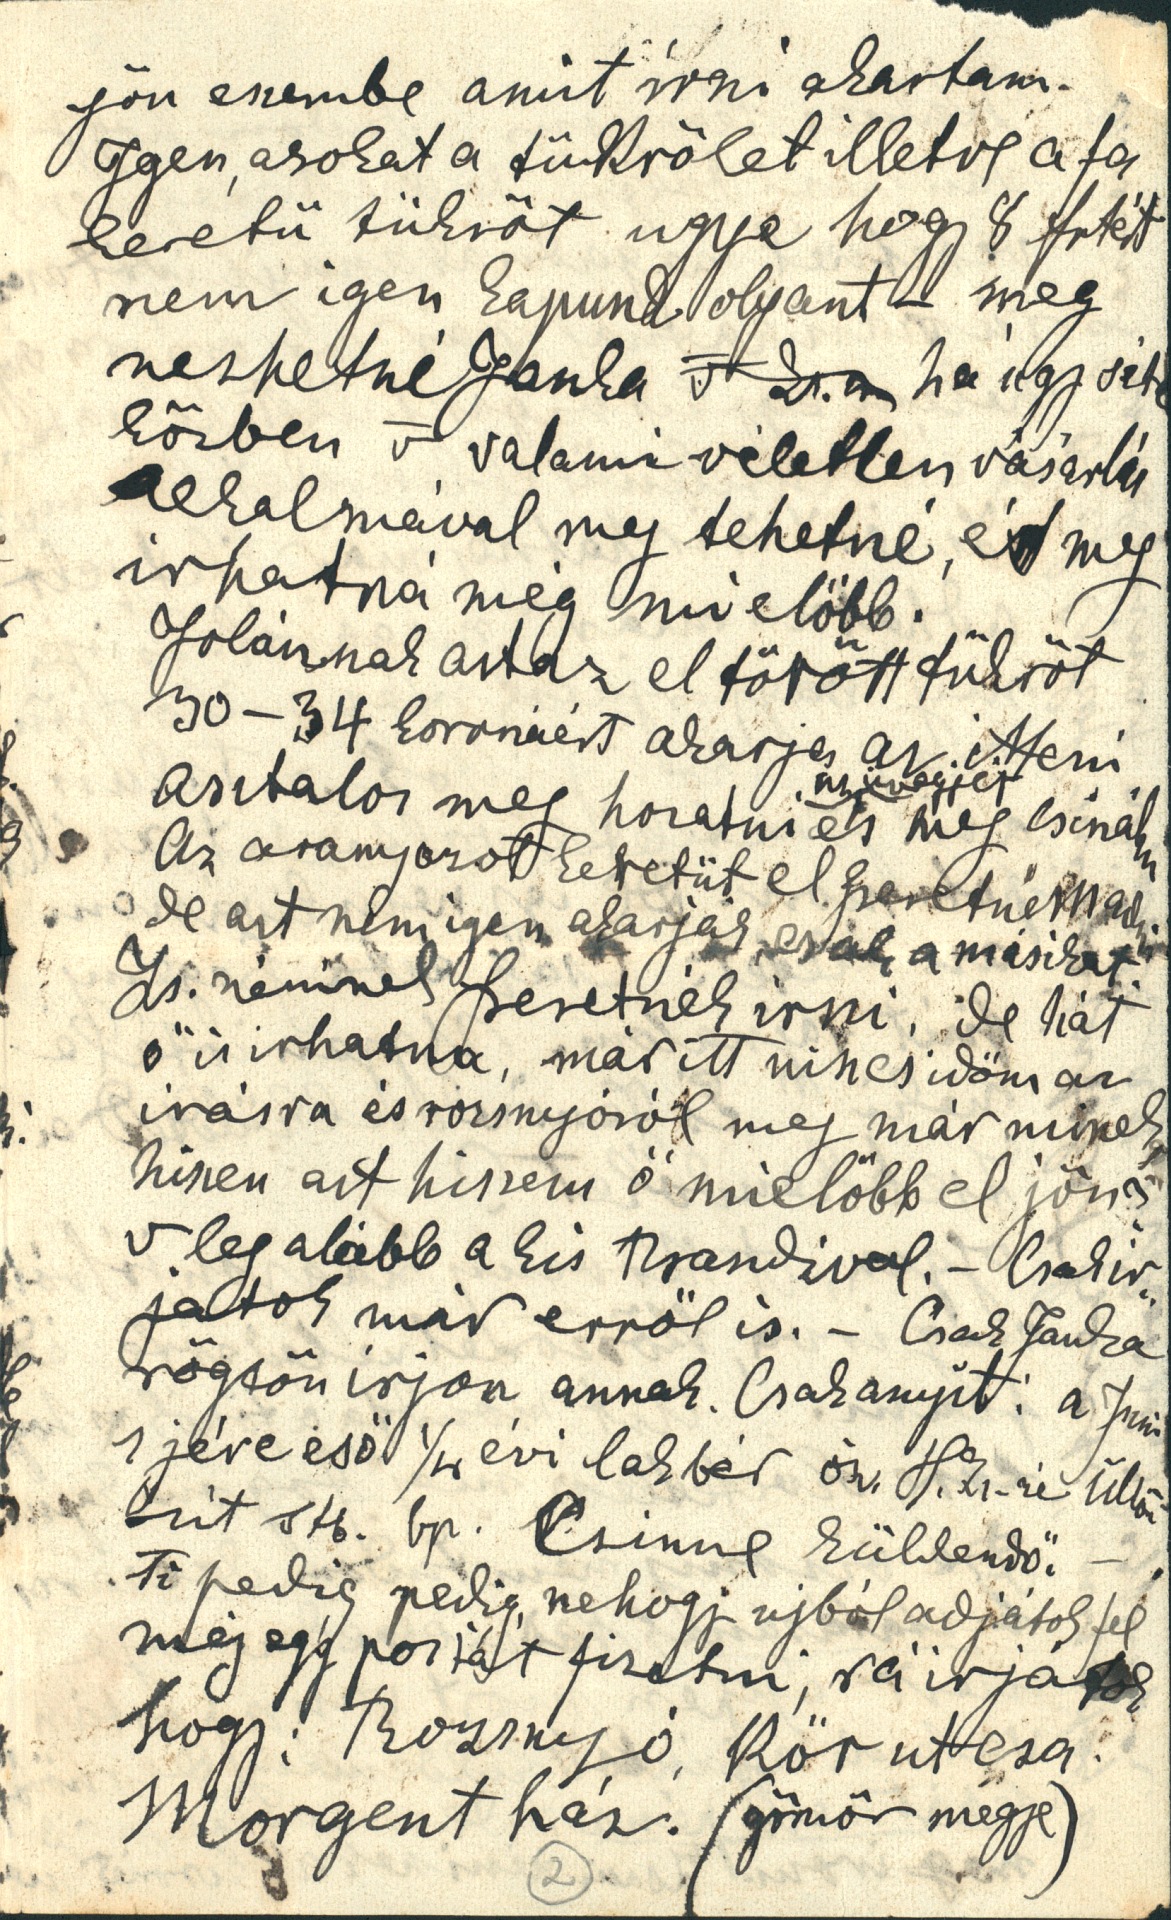 jön eszembe amit irni akartam.
Igen, azokat a tükrölet illetve a fa
keretü tükröt ugye hogy 8 frtért
nem igen kapunk olyant – meg
nézhetné Janka v ha úgy séta
közben v valami véletlen vásárlás
alkalmával meg tehetné, és meg
irhatná még mielöbb.
Jolánnak azt az el törött tükröt
30 – 34 koronáért akarja az itteni
asztalos meg hozatni és meg csinálni
az üvegjét
Az aranyozot keretüt el szeretném adni
de azt nem igen akarják, csak a másikat.
Zs. néninek szeretnék irni, de hát
ö is irhatna, már itt nincs idöm az
irásra és rozsnyóról meg már minek
hiszen azt hiszem ö mielöbb el jön
v legalább a kis Brandival. – Csak ir-
jatok már erröl is. – Csak Janka
rögtön irjon annak. Csak anyit: a Juni
1 jére esö 1/4 évi lakbér Üllöi
út stb. bp. küldendö. –
Ti pedig pedig, nehogy ujból adjátok fel
még egy portát fizetni, rá irjátok
hogy: Rozsnyó, Kör utcza.
Morgent ház. (gömör megye)
2